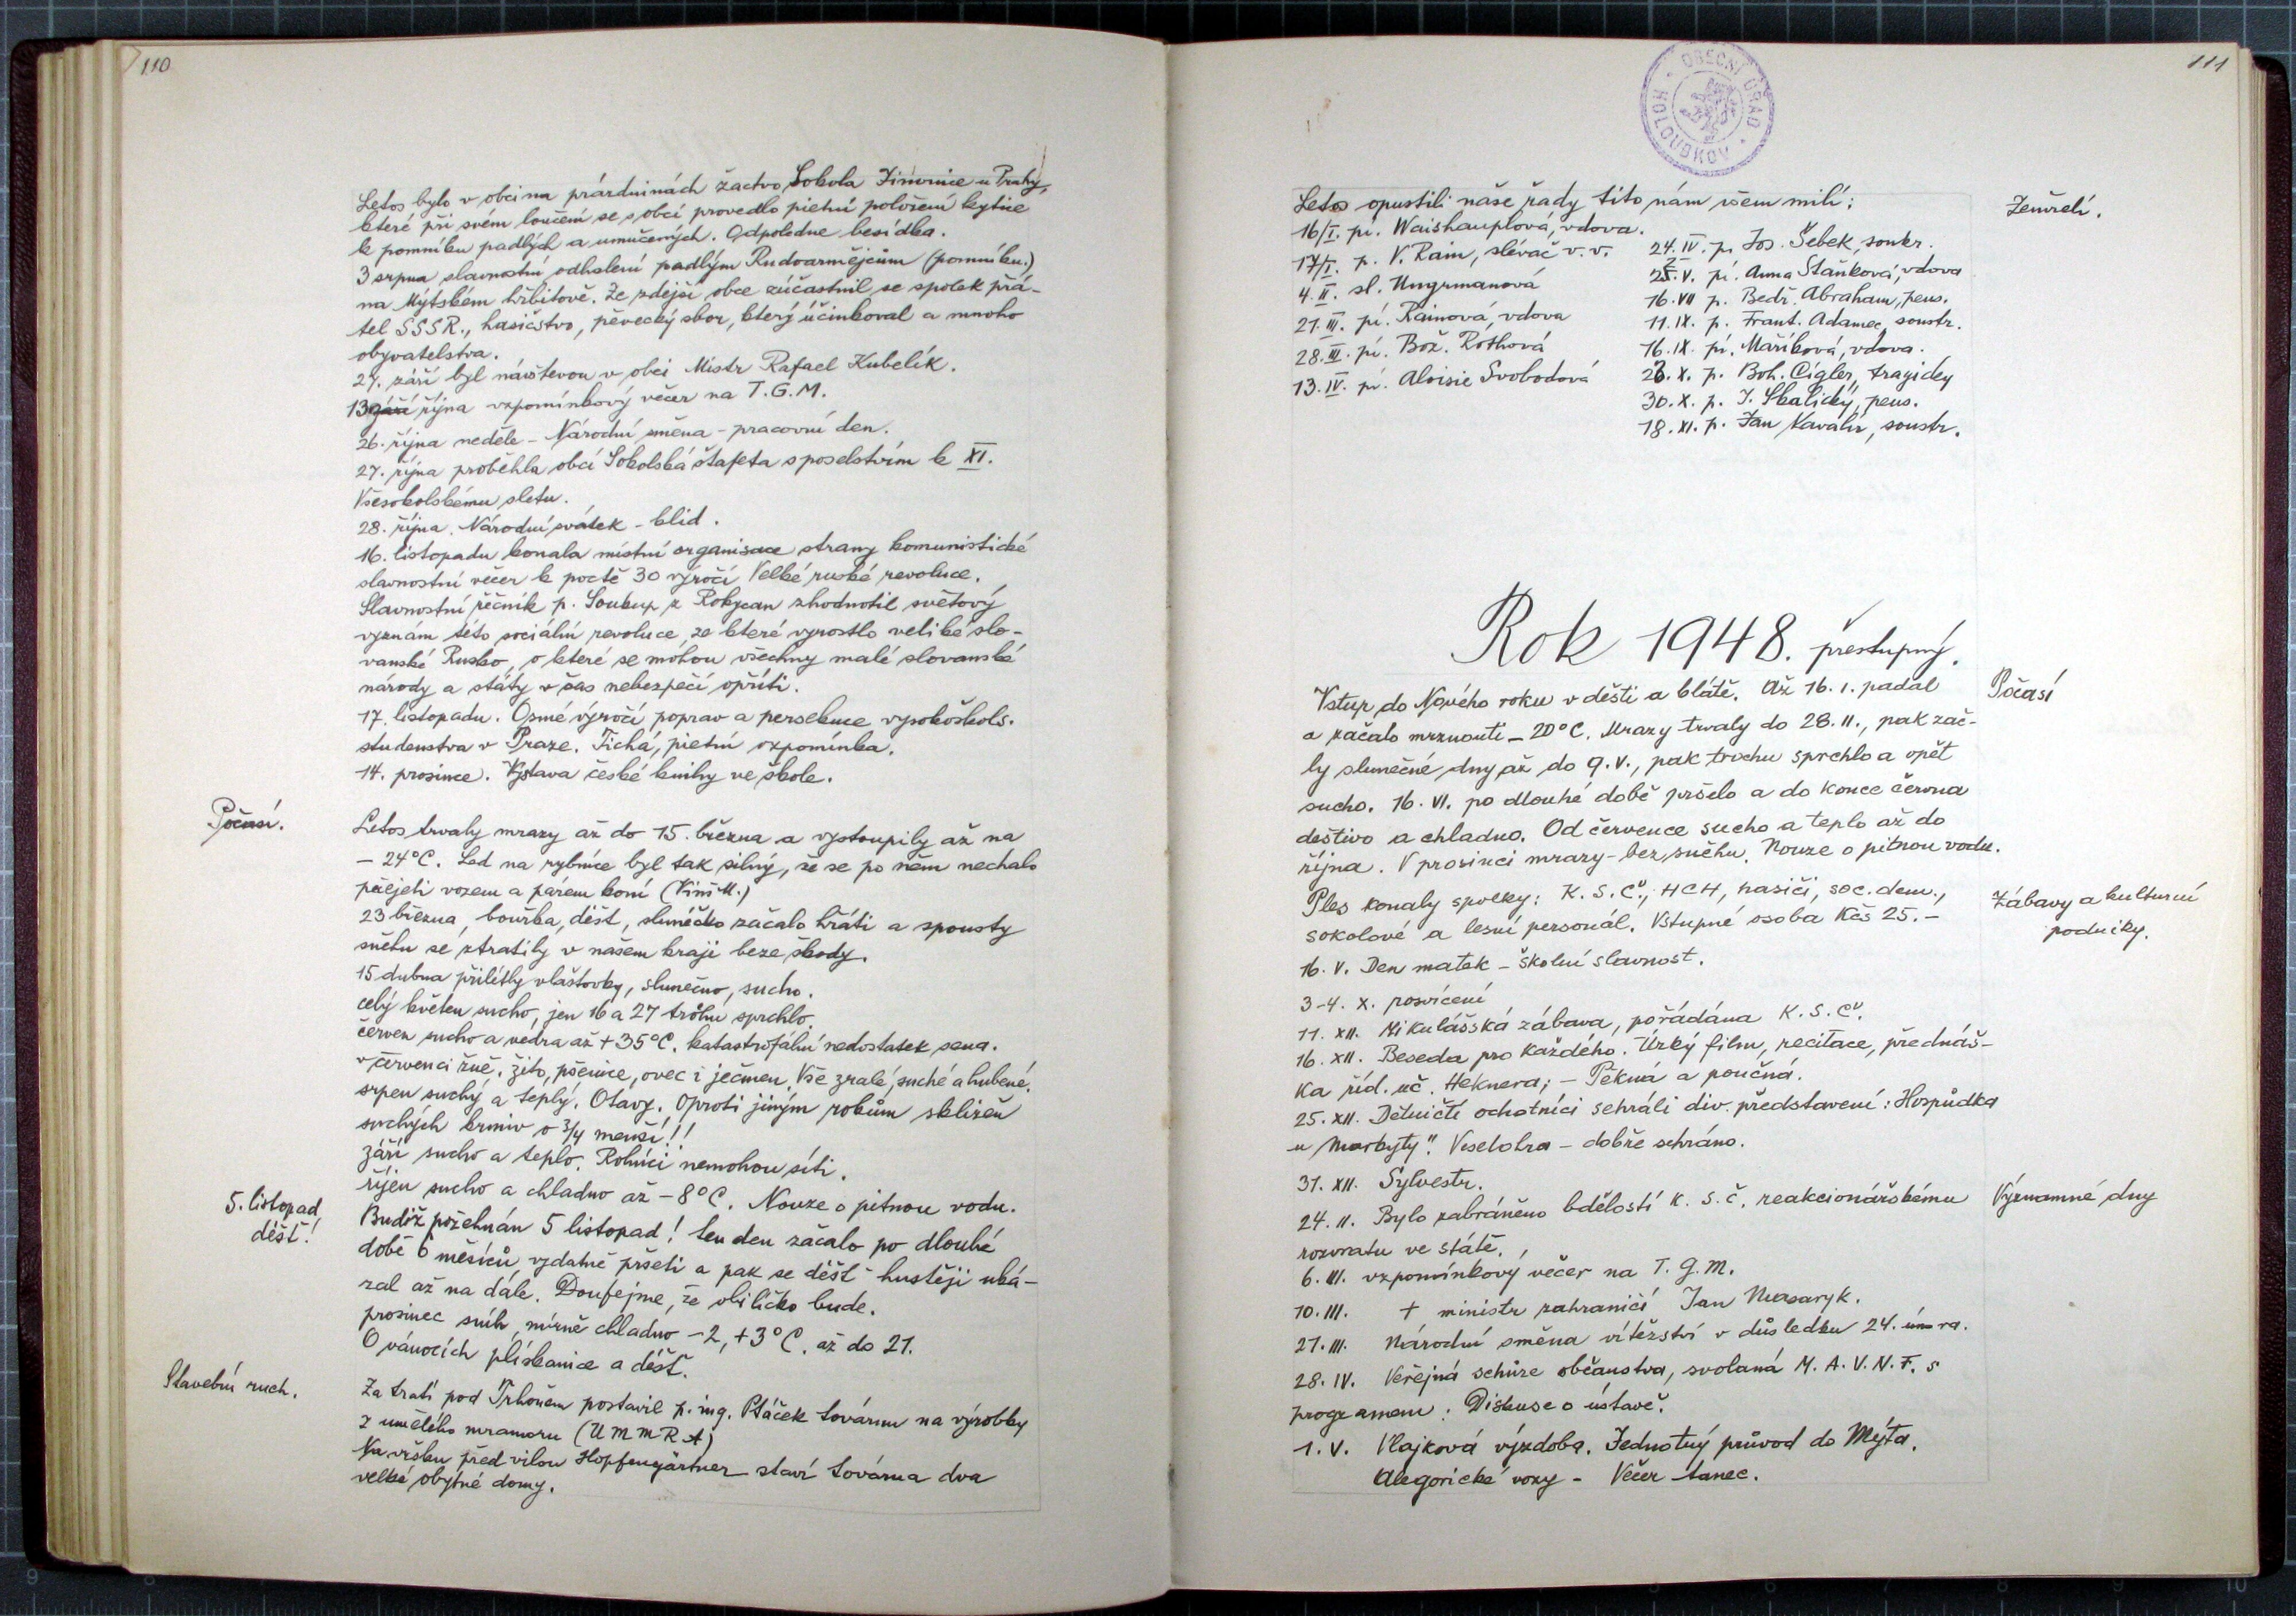 110
Letos bylo v obci na prázdninách žactvo Sokola Jinonice u Prahy,
které při svém loučení se s obcí provedlo pietní položení kytice
k pomníku padlých a umučených. Odpoledne besídka.
3 srpna slavnostní odhalení padlým Rudoarmějcům (pomníku.)
na Mýtském hřbitově. Ze zdejší obce zúčastnil se spolek přá-
tel SSSR., hasičstvo, pěvecký sbor, který účinkoval a mnoho
obyvatelstva.
27. září byl návštevou v obci Mistr Rafael Kubelík.
13 září října vzpomínkový večer na T.G.M.
26. října neděle - Národní směna - pracovní den.
27. října proběhla obcí Sokolská štafeta s poselstvím k XI.
Všesokolskému sletu.
28. října. Národní svátek - klid.
16. listopadu konala místní organisace strany komunistické
slavnostní večer k poctě 30 výročí Velké ruské revoluce.
Slavnostní řečník p. Soukup z Rokycan zhodnotil světový
význam této sociální revoluce, ze které vyrostlo veliké slo-
vanské Rusko, o které se mohou všechny malé slovanské
národy a státy v čas nebezpečí opříti.
17. listopadu. Osmé výročí poprav a persekuce vysokoškols.
studenstva v Praze. Tichá, pietní vzpomínka.
14. prosince. Výstava české knihy ve škole.
Počasí.
Letos trvaly mrazy až do 15. března a vystoupily až na
- 24°C. Led na rybníce byl tak silný, že se po něm nechalo
přejeti vozem a párem koní (Vinš M.)
23 března, bouřka, déšť, sluníčko začalo hřáti a spousty
sněhu se ztratily v našem kraji beze škody.
15 dubna přilítly vlaštovky, slunečno, sucho.
celý květen sucho, jen 16 a 27 tróhu sprchlo.
červen sucho a vedra až +35°C. katastrofální nedostatek sena.
v červenci žně. žito, pšenice, oves i ječmen. Vše zralé, suché a hubené.
srpen suchý a teplý. Otavy. Oproti jiným rokům sklizeň
suchých krmiv o 3/4 menší!!
září sucho a teplo. Rolníci nemohou síti.
říjen sucho a chladno až - 8°C. Nouze o pitnou vodu.
5. listopad
déšť!
Budiž požehnán 5 listopad! ten den začalo po dlouhé
době 6 měsíců vydatně pršeti a pak se déšť hustěji uká-
zal až na dále. Doufejme, že obilíčko bude.
prosinec sníh, mírně chladno -2, +3°C. až do 21.
O vánocích plískanice a déšť.
Stavební ruch.
Za tratí pod Trhoněm postavil p. ing. Ptáček továrnu na výrobky
z umělého mramoru (UMMRA)
Na vršku před vilou Hopfengärtner staví továrna dva
velké obytné domy.
111
OBECNÍ ÚŘAD HOLOUBKOV
Letos opustili naše řady tito nám všem milí:
Zemřelí.
16/I. pí. Waishauplová, vdova.
17/I. p. V. Rain, slévač v. v.
4. II. sl. Ungrmanová
21. III. pí. Rainová, vdova
28. III. pí. Bož. Rothová
13. IV. pí. Aloisie Svobodová
24. IV. p. Jos. Šebek, soukr.
25. V. pí. Anna Staňková, vdova
16. VII p. Bedř. Abraham, pens.
11. IX. p. Frant. Adamec, soustr.
16. IX. pí. Maříková, vdova.
23. X. p. Boh. Cígler, tragicky
30. X. p. J. Skalický, pens.
18. XI. p. Jan Kavalír, soustr.
Rok 1948. přestupný.
Počasí
Vstup do Nového roku v dešti a blátě. Až 16. 1. padal
a začalo mrznouti - 20°C. Mrazy trvaly do 28. II., pak zač-
ly slunečné dny až do 9. V., pak trochu sprchlo a opět
sucho. 16. VI. po dlouhé době pršelo a do konce června
deštivo a chladno. Od července sucho a teplo až do
října. V prosinci mrazy - bez sněhu. Nouze o pitnou vodu.
Zábavy a kulturní
podniky.
Ples konaly spolky: K. S. Č., HCH, hasiči, soc. dem.,
sokolové a lesní personál. Vstupné osoba Kčs 25.-
16. V. Den matek - školní slavnost.
3-4. X. posvícení
11. XII. Mikulášská zábava, pořádána K. S. Č.
16. XII. Beseda pro každého. Úzký film, recitace, přednáš-
ka říd. uč. Heknera; - Pěkná a poučná.
25. XII. Dělničtí ochotníci sehráli div. představení: Hospůdka
u Markyty". Veselohra - dobře sehráno.
31. XII. Sylvestr.
Významné dny
24. II. Bylo zabráněno bdělostí K. S. Č. reakcionářskému
rozvratu ve státě.
6. III. vzpomínkový večer na T. G. M.
10. III. + ministr zahraničí Jan Masaryk.
21. III. Národní směna vítězství v důsledku 24. února.
28. IV. Veřejná schůze občanstva, svolaná M. A. V. N. F. s
programem: Diskuse o ústavě.
1. V. Vlajková výzdoba. Jednotný průvod do Mýta.
Alegorické vozy - Večer tanec.